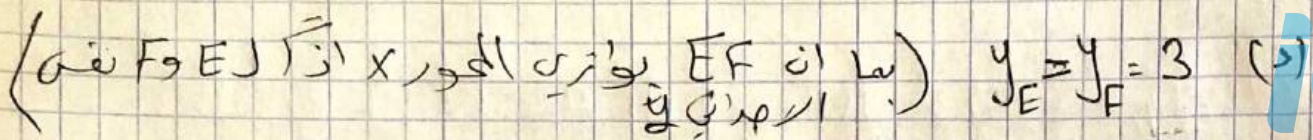 (د) y_E = y_F = 3 (بما ان EF يوازي المحور x اذًا ل E و F نفس
الاحداثي y)